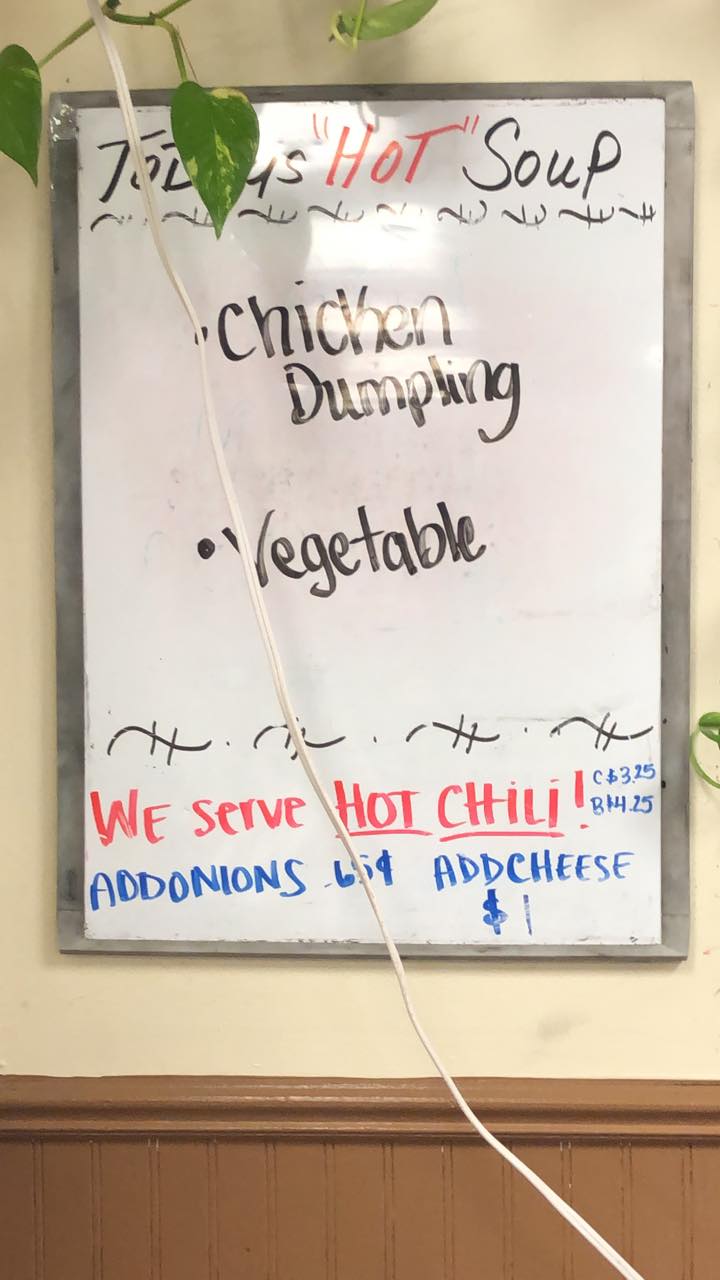 Todays "HOT" Soup
• Chicken
Dumpling
• Vegetable
WE serve HOT CHILI!
C $3.25
B $4.25
ADD ONIONS .65¢ ADD CHEESE
$1